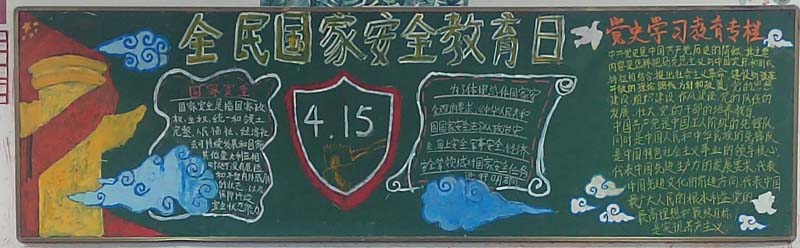 全民国家安全教育日
国家安全
国家安全是指国家政
权、主权、统一和领土
完整、人民福祉、经济社
会可持续发展和国家
其他重大利益相
对处于没有危险
和不受内外威胁
的状态，以及
保障持续
安全状态能力
4.15
为了体现总体国家安
全观的要求，《中华人民共和
国国家安全法》从政治安
全、国土安全、军事安全、经济
党史学习教育专栏
中共党史是中国共产党历史的简称，其主要
建设、组织建设、作风建设、党的队伍的
发展、壮大、党的干部的培养教育
中国共产党是中国工人阶级的先锋队
同时是中国人民和中华民族的先锋队
是中国特色社会主义事业的领导核心
代表中国先进生产力的发展要求，代表
中国先进文化的前进方向，代表中国
最广大人民的根本利益，党的
最高理想和最终目标
是实现共产主义